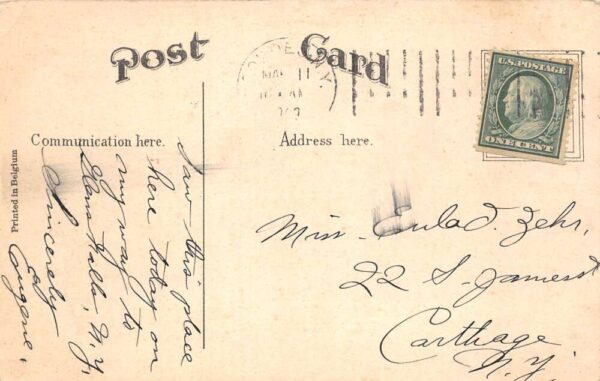 Post Card
MAY 11
U.S. POSTAGE
ONE CENT
Communication here.
Address here.
Printed in Belgium
I saw this place
here today on
my way to
Glens Falls, N.Y.
Sincerely
Eugene.
Miss Eula D. Zehr,
22 S. James St
Carthage
N.Y.